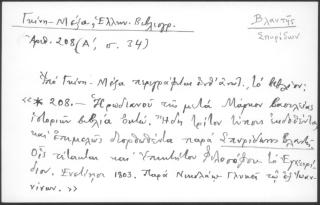 Γκίνη - Μέξα, Ἑλλην. Βιβλιογρ.
Ἀριθ. 208 (Α΄, σ. 34)
Βλαντῆς
Σπυρίδων
Ὑπὸ Γκίνη - Μέξα περιγράφεται τὸ βιβλίον:
«* 208. – Ἡρωδιανοῦ τῆς μετὰ Μάρκον βασιλείας
ἱστοριῶν βιβλία ὀκτώ. Ἤδη τρίτον τύποις ἐκδοθέντα
καὶ ἐπιμελῶς διορθωθέντα παρὰ Σπυρίδωνος Βλαντῆ.
Οἷς τέτακται καὶ Ἐπικτήτου φιλοσόφου τὸ Ἐγχειρί-
διον. Ἐνετίησι 1803. Παρὰ Νικολάῳ Γλυκεῖ τῷ ἐξ Ἰωαν-
νίνων. »